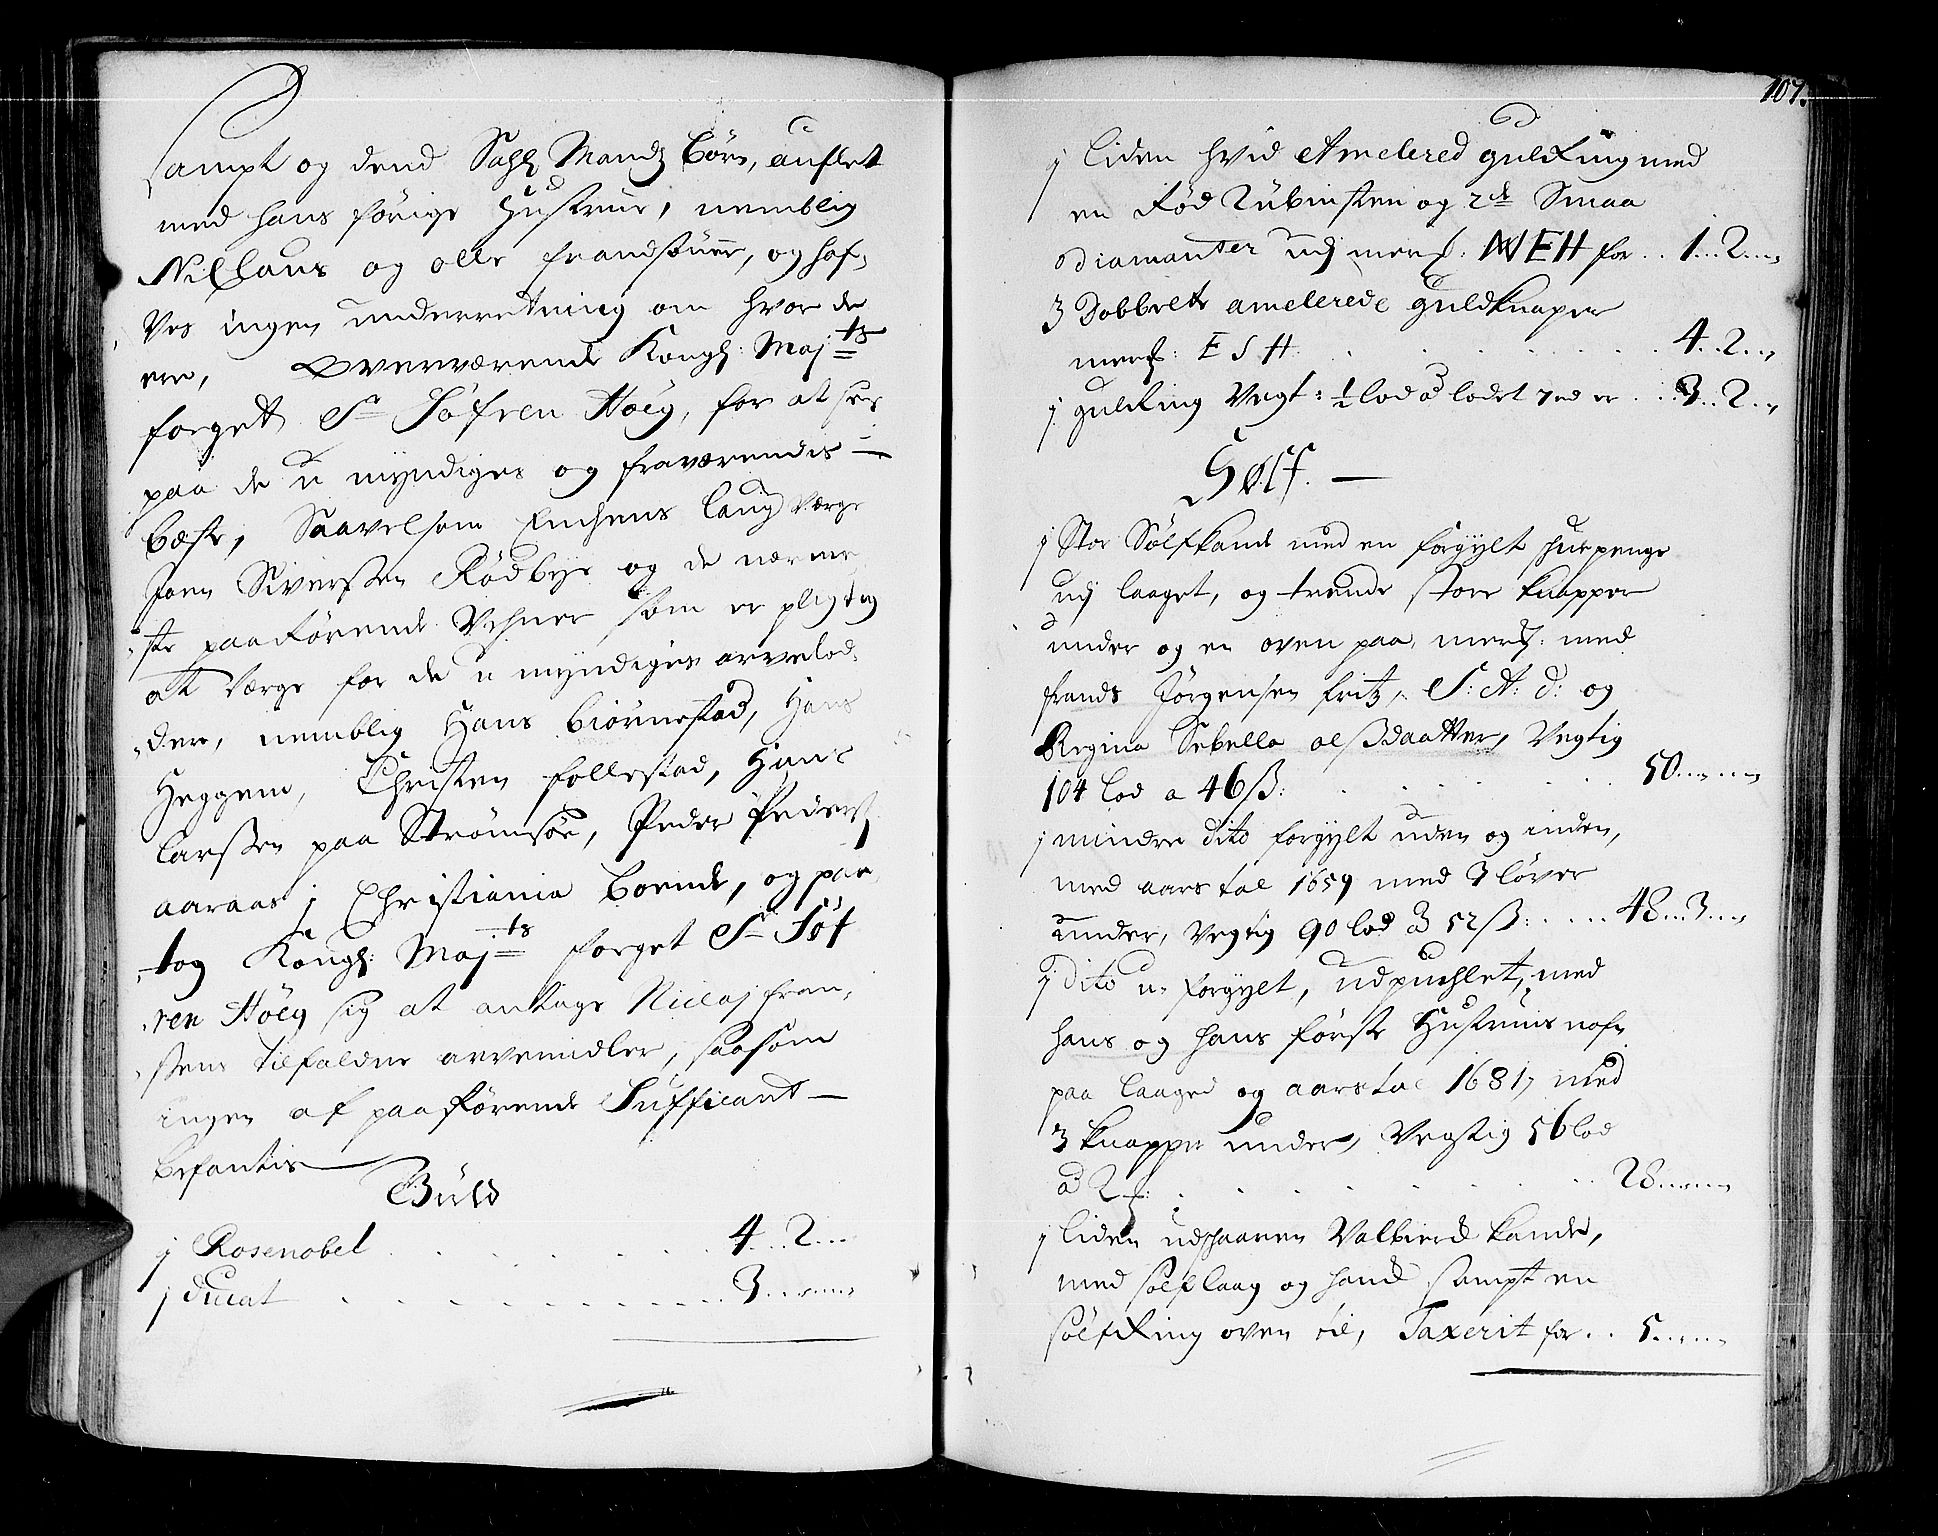 sampt og dend Sahl Mands børn, auflet
med hans forige Hustrue, nemblig
Nicklaus og olle frandsønner, og haf-
ves ingen underretning om hvor de
ere, Overværende Kongl: Majts
forget Sr Søfren Høeg, for at see
paa de u myndiges og fraværendes
beste, Saavelsom Enchens laug værge
Joen Siverssen Rødbye og de nærme
ste paarørende Vehner som er pligtig
at værge for de u myndiges arvelod-
der, nemblig Hans Biørnestad, Hans
Heggem, Christen follestad, Hans
Larssen paa Strømsøe, Peder Peders
aaraas j Christiania boende, og paa
tog Kongl: Majts forget Sr Søf
ren Høeg sig at antage Niclaj fran-
sens tilfaldne arvemidler, saasom
ingen af paarørende Sufficant
befantis
Guld
j Rosenobel 4..2...
j ducat 3......
107.
j liden hvid Amelered guldRing med
en Rød Rubinsten og 2de Smaa
diamanter udj merch: NEH for .. 1..2...
3 Dobbelte amelerede guldknaper
merch: E S H. 4..2..
j guldRing Vegt: ½ lod a lodet 7 rd er 3..2..
Sølf.
j Stor Sølfkande med en forgylt skuepenge
udj laaget, og trende store knapper
under og en oven paa, merch: med
frands Jørgensen fritz, S: A: d: og
Regina Sebella olssdaatter, Vegtig
104 lod a 46 ß: 50......
j mindre dito forgylt uden og inden,
med aars tal 1659 med 3 løver
under, Vegtig 90 lod a 52 ß: 48..3...
j dito u-forgylt, udpuchlet, med
hans og hans første Hustruis nafn
paa laaged og aarstal 1681, med
3 knapper under, Vegtig 56 lod
a 2 28......
j liden udschaaren Valbierd kande,
med sølf laag og hand sampt en
sølfRing oven til, Taxerit for .. 5......